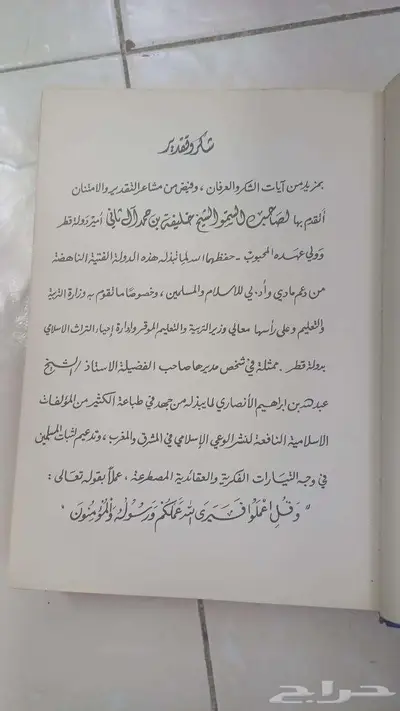 شكر وتقدير
بمزيد من آيات الشكر والعرفان ، وفيض من مشاعر التقدير والامتنان
أتقدم بها لصاحب السمو الشيخ خليفة بن حمد آل ثاني أمير دولة قطر
وولي عهده المحبوب - حفظهما الله لما تبذله هذه الدولة الفتية الناهضة
من دعم مادي وأدبي للإسلام والمسلمين ، وخصوصا ما تقوم به وزارة التربية
والتعليم وعلى رأسها معالي وزير التربية والتعليم الموقر وإدارة إحياء التراث الاسلامي
بدولة قطر . ممثلة في شخص مديرها صاحب الفضيلة الاستاذ / الشيخ
عبد الله بن ابراهيم الأنصاري لما يبذله من جهد في طباعة الكثير من المؤلفات
الاسلامية النافعة لنشر الوعي الإسلامي في المشرق والمغرب ، وتدعيم لثبات المسلمين
في وجه التيارات الفكرية والعقائدية المصطرعة ، عملاً بقوله تعالى :
" وَقُلِ اعْمَلُوا فَسَيَرَى اللهُ عَمَلَكُمْ وَرَسُولُهُ وَالْمُؤْمِنُونَ "
حراج